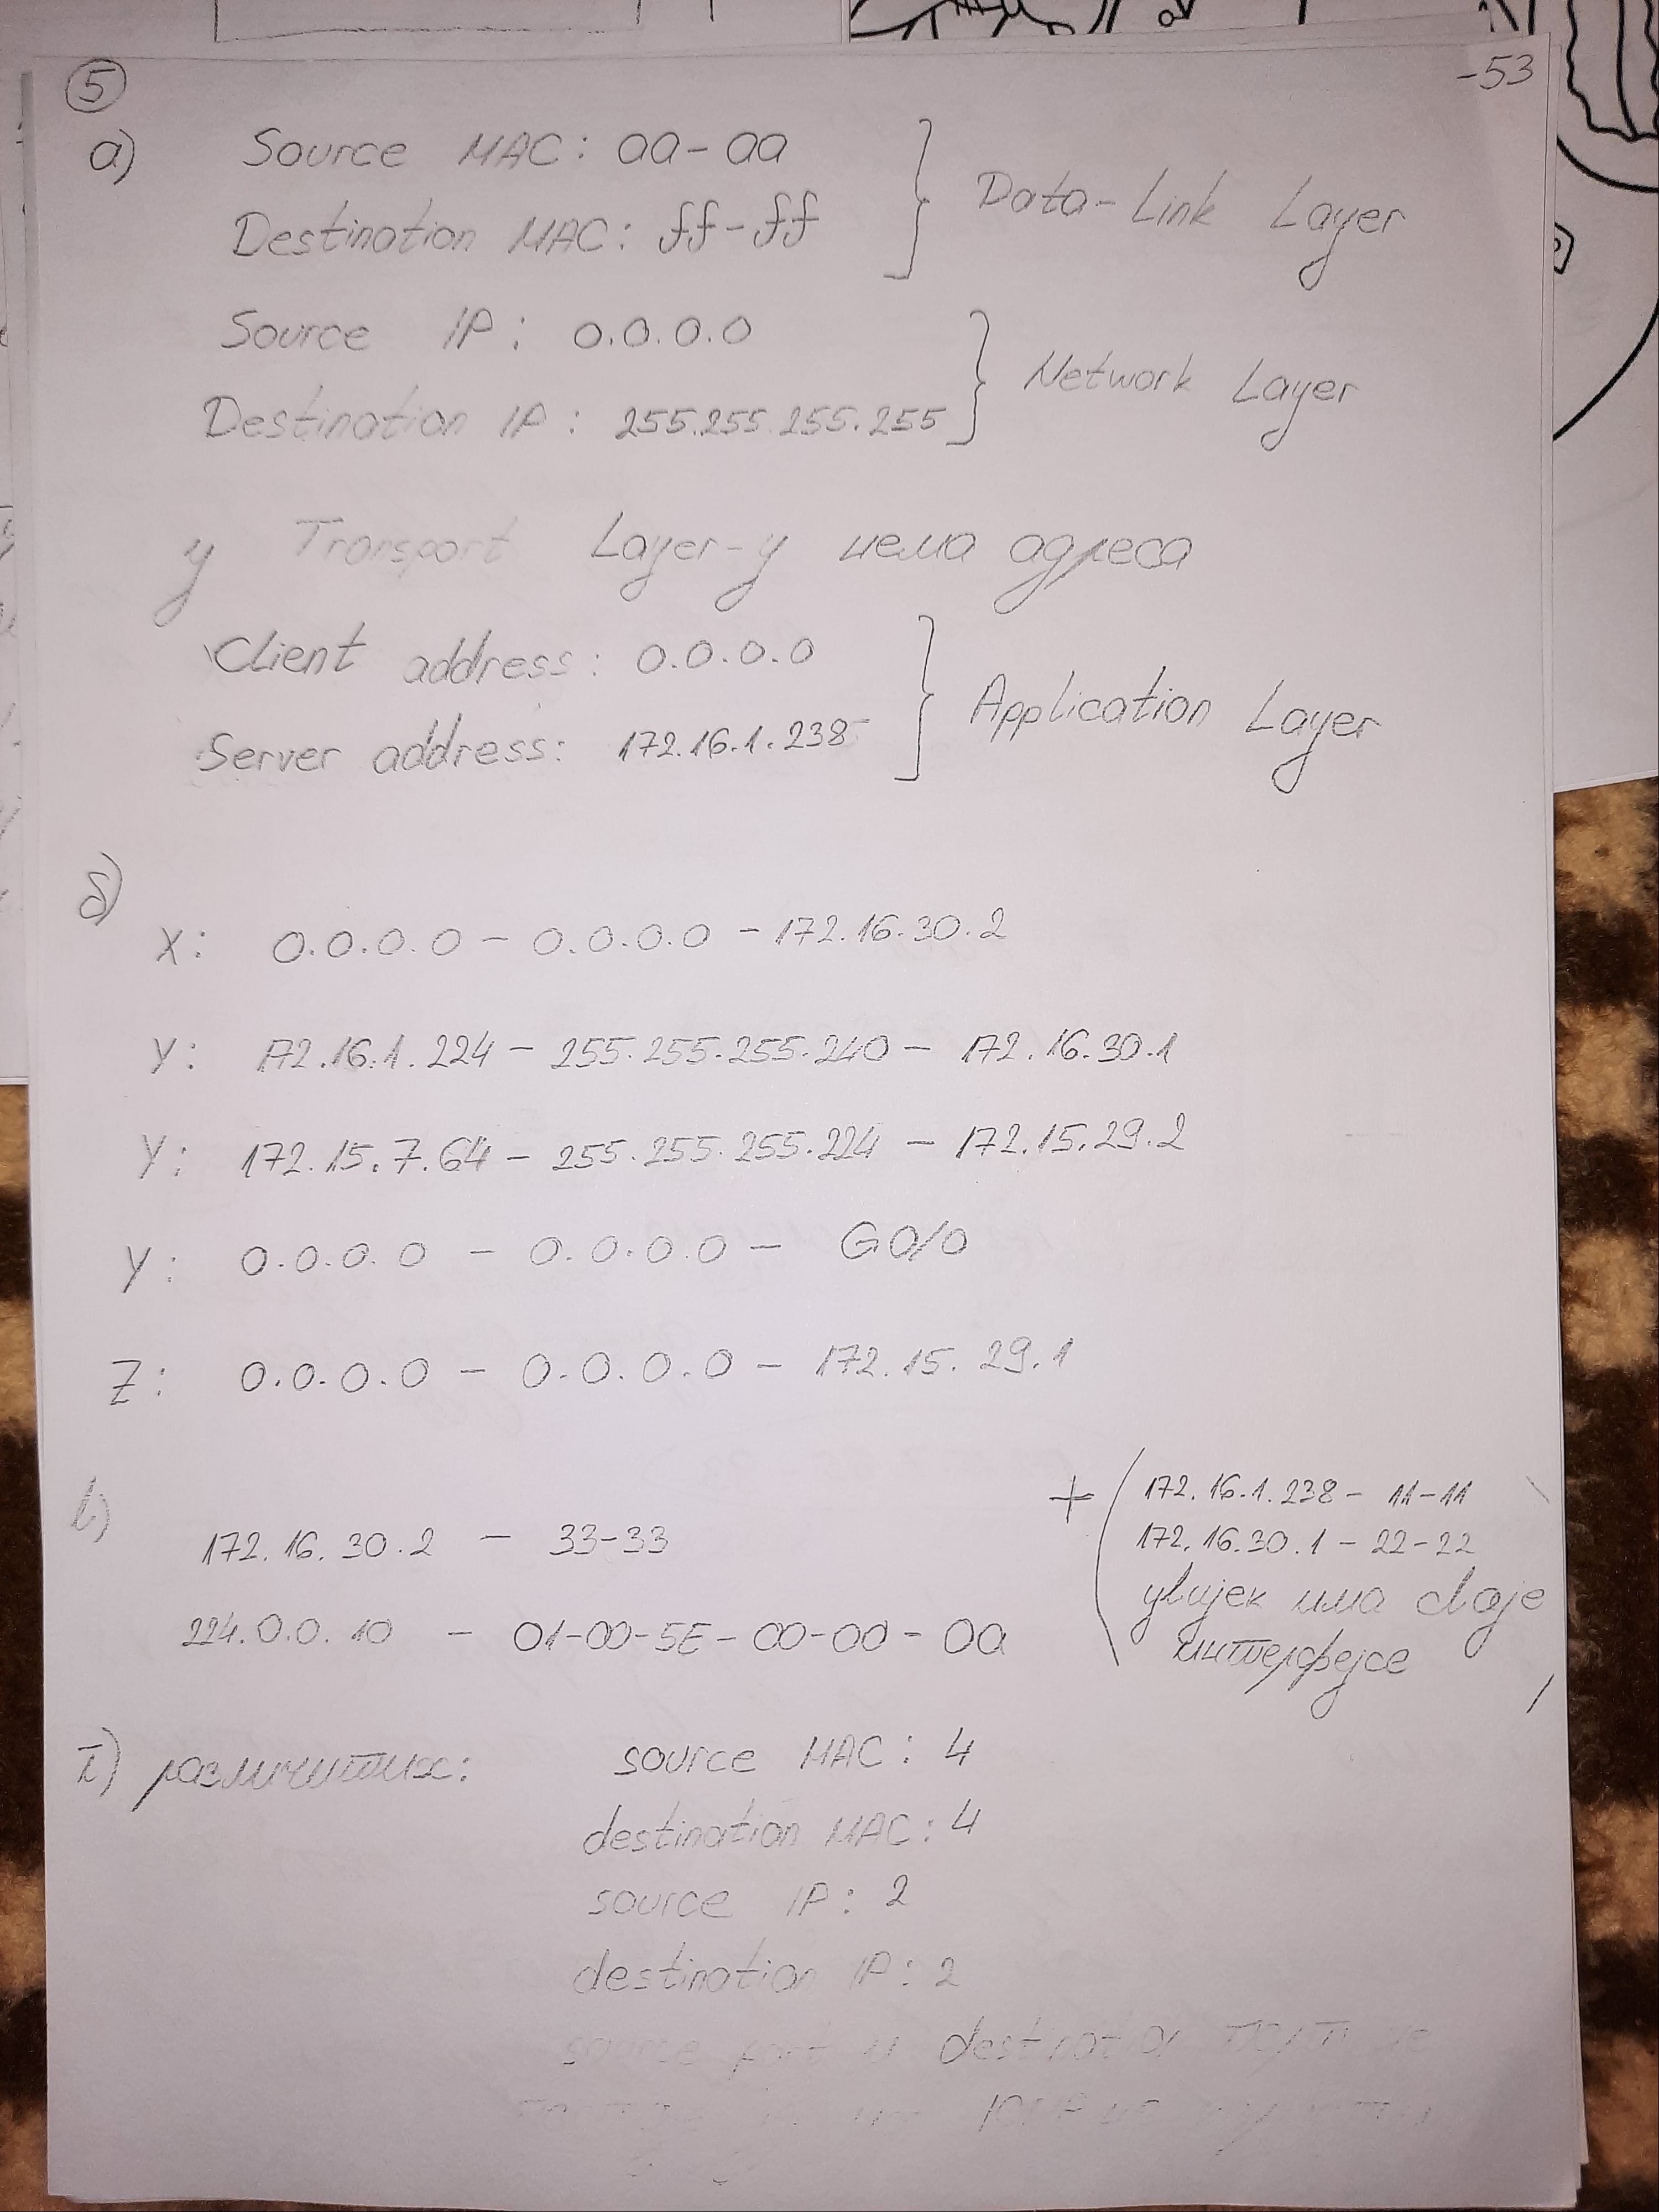 5
-53
а) Source MAC: aa-aa
Destination MAC: ff-ff
Data-Link Layer
Source IP: 0.0.0.0
Destination IP: 255.255.255.255
Network Layer
у Transport Layer-у нема адреса
Client address: 0.0.0.0
Server address: 172.16.1.238
Application Layer
б)
X: 0.0.0.0 - 0.0.0.0 - 172.16.30.2
Y: 172.16.1.224 - 255.255.255.240 - 172.16.30.1
Y: 172.15.7.64 - 255.255.255.224 - 172.15.29.2
Y: 0.0.0.0 - 0.0.0.0 - G0/0
Z: 0.0.0.0 - 0.0.0.0 - 172.15.29.1
в)
172.16.30.2 - 33-33
224.0.0.10 - 01-00-5E-00-00-0a
+ 172.16.1.238 - 11-11
172.16.30.1 - 22-22
увијек има своје
интерфејсе
г) различитих: source MAC: 4
destination MAC: 4
source IP: 2
destination IP: 2
source port и